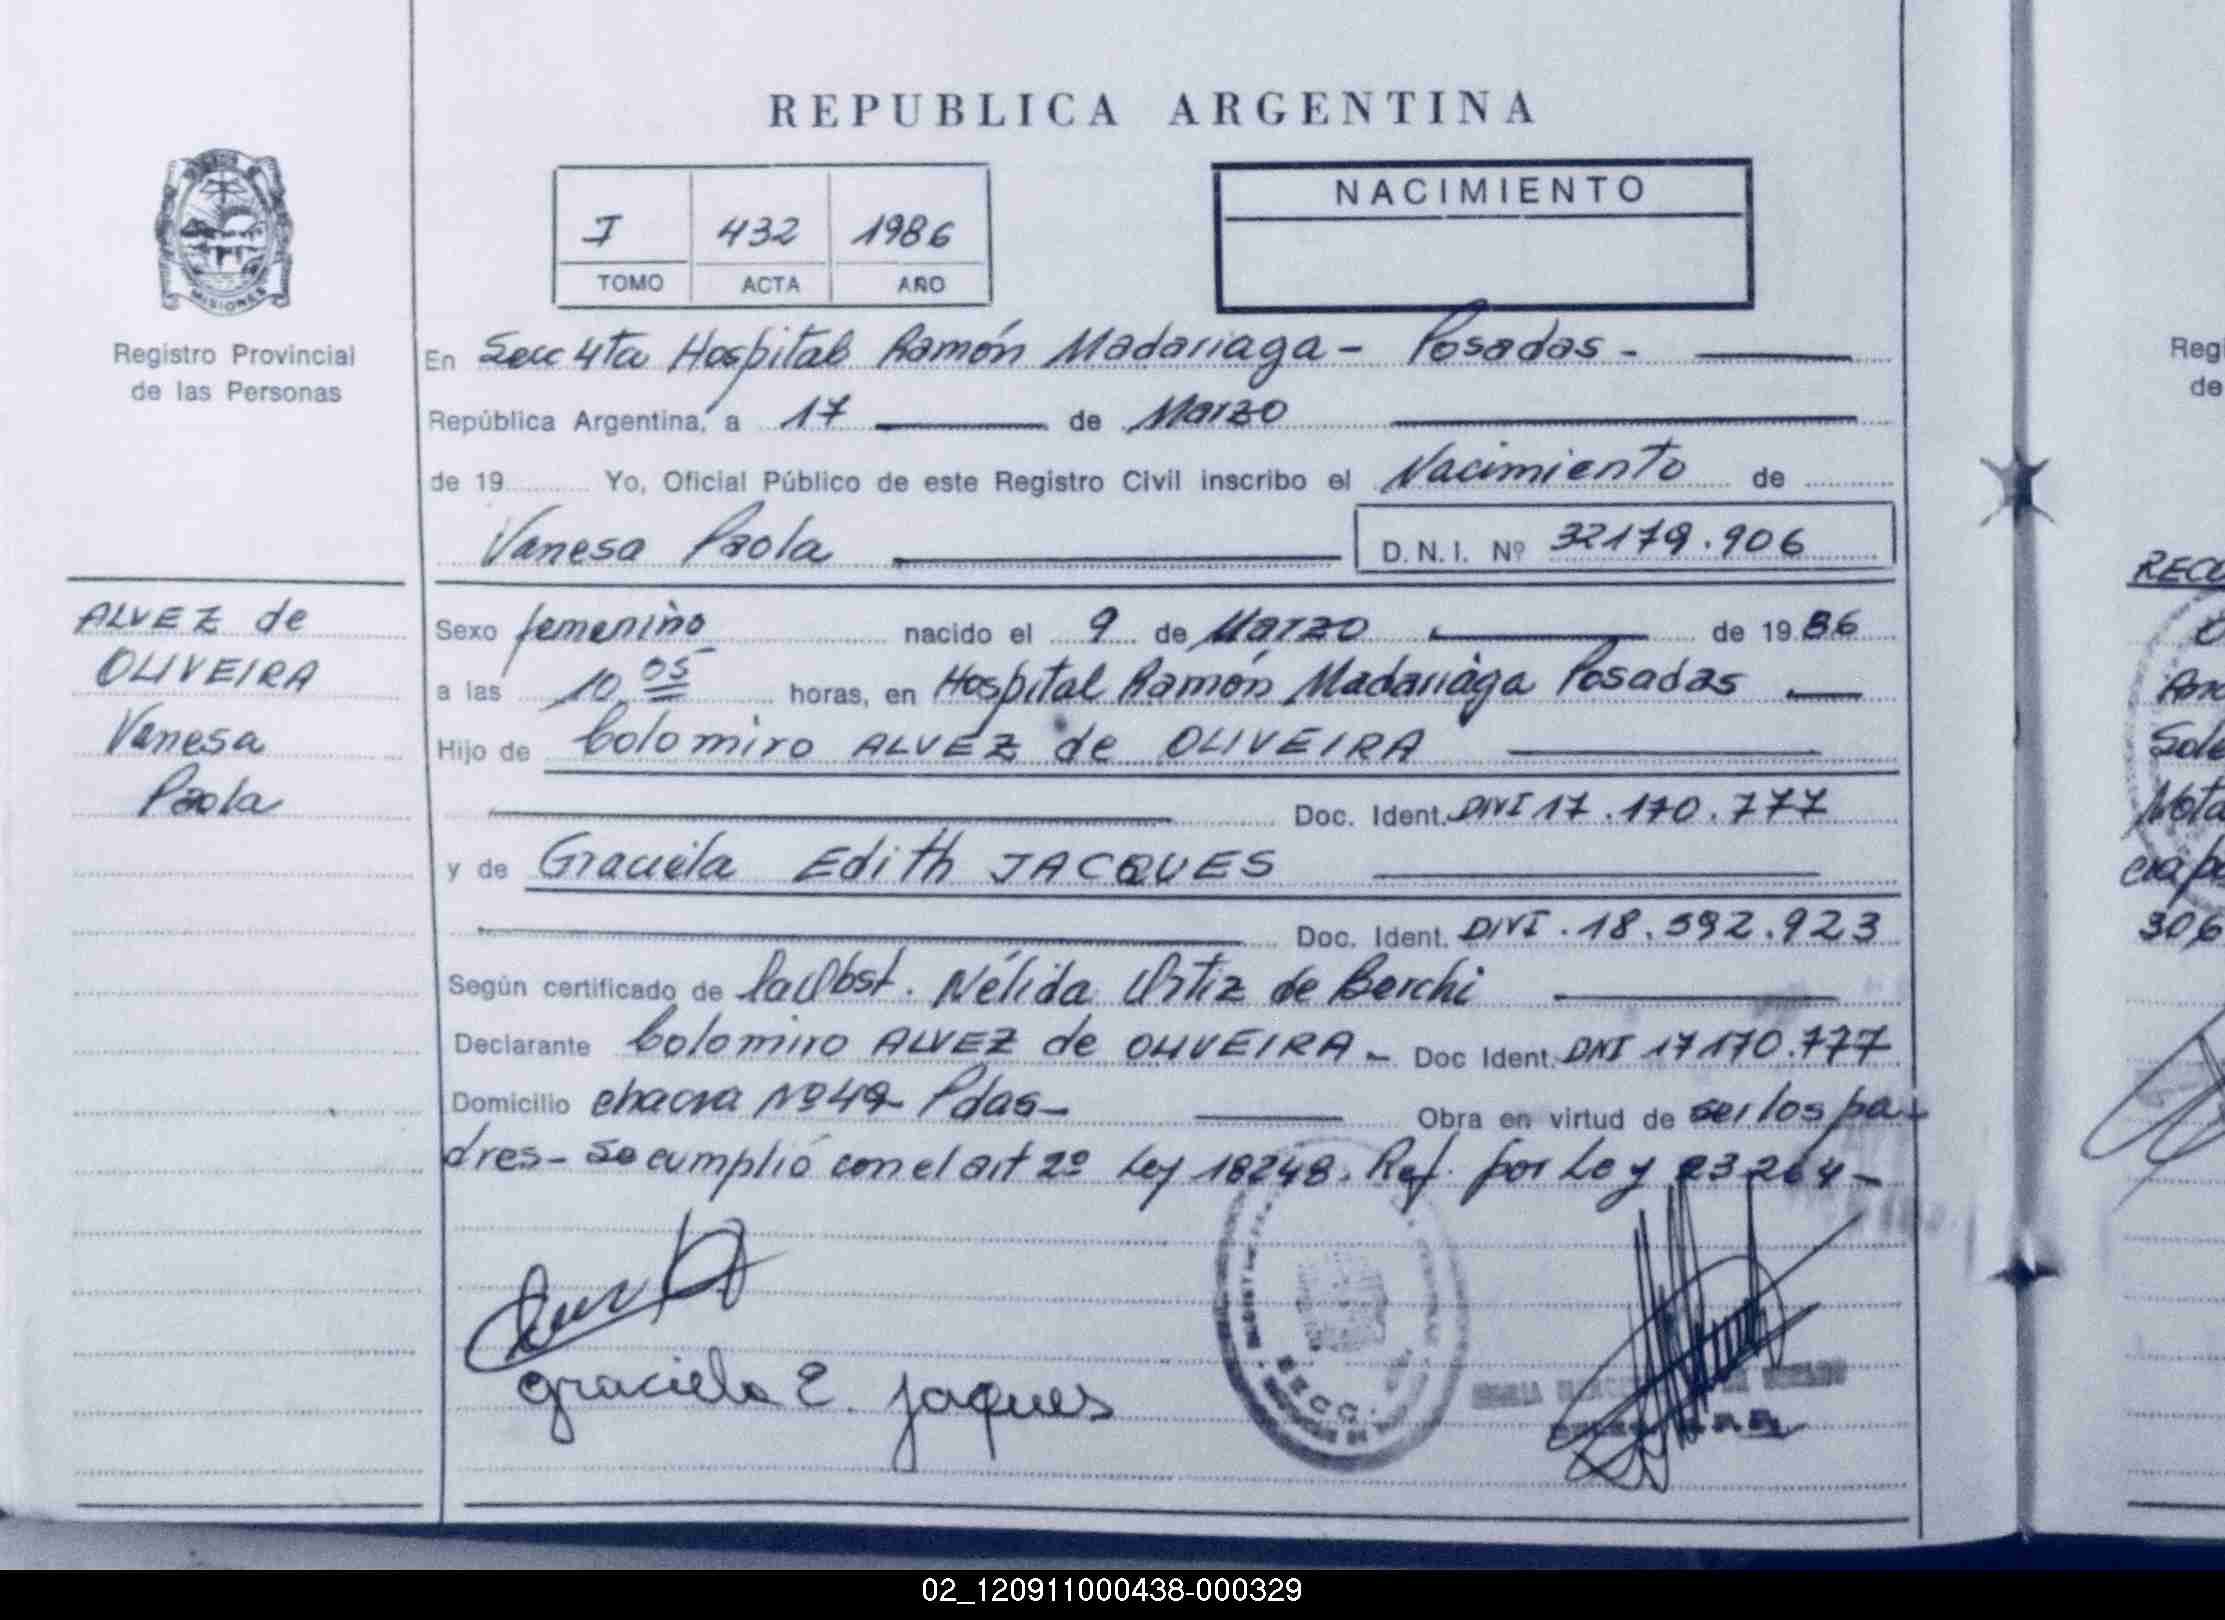 REPUBLICA ARGENTINA
MISIONES
Registro Provincial
de las Personas
I 432 1986
TOMO ACTA AÑO
NACIMIENTO
En Secc 4ta Hospital Ramón Madariaga - Posadas -
República Argentina, a 17 de Marzo
de 19 Yo, Oficial Público de este Registro Civil inscribo el Nacimiento de
Vanesa Paola D.N.I. Nº 32179.906
ALVEZ de
OLIVEIRA
Vanesa
Paola
Sexo femenino nacido el 9 de Marzo de 1986
a las 10 05 horas, en Hospital Ramón Madariaga Posadas
Hijo de Colomiro ALVEZ de OLIVEIRA
Doc. Ident. DNI 17.170.777
y de Graciela Edith JACQUES
Doc. Ident. DNI . 18.592.923
Según certificado de Obst. Nélida Ortiz de Berchi
Declarante Colomiro ALVEZ de OLIVEIRA - Doc Ident. DNI 17170.777
Domicilio chacra Nº 49 - Pdas - Obra en virtud de ser los pa-
dres - Se cumplió con el art 2º Ley 18248. Ref. por Ley 23264 -
Graciela E. Jaques
Regi
de
RECO
Sole
Nota
306
02_120911000438-000329